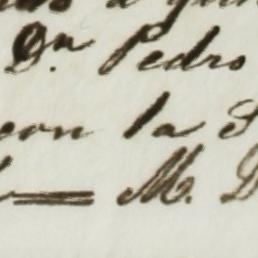 a
Dn. Pedro
con la S
M. D